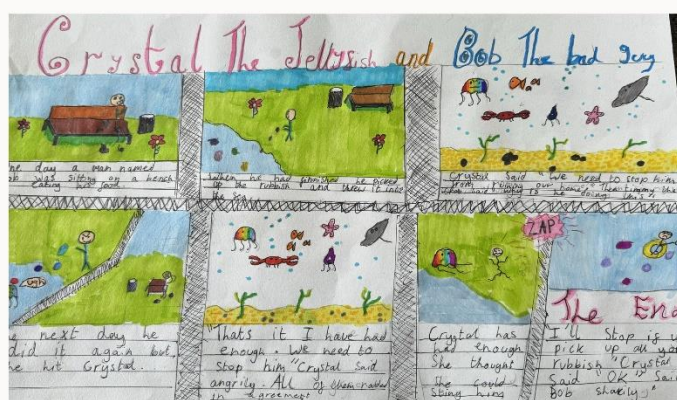 Crystal The Jellyfish and Bob The bad guy
day a man named
was sitting on a bench
eating his food
When he had finished he picked
up the rubbish and threw it into
the
Crystal said "We need to stop him
from our home" then
Ugh
next day he
did it again but
he hit Crystal.
"Thats it I have had
enough. We need to
stop him" Crystal said
angrily. All of them
in agreement
Crystal has
had enough
She thought
She could
sting him
ZAP
The End
I'll stop if
pick up all
rubbish" Crystal
Said "OK" Said
Bob